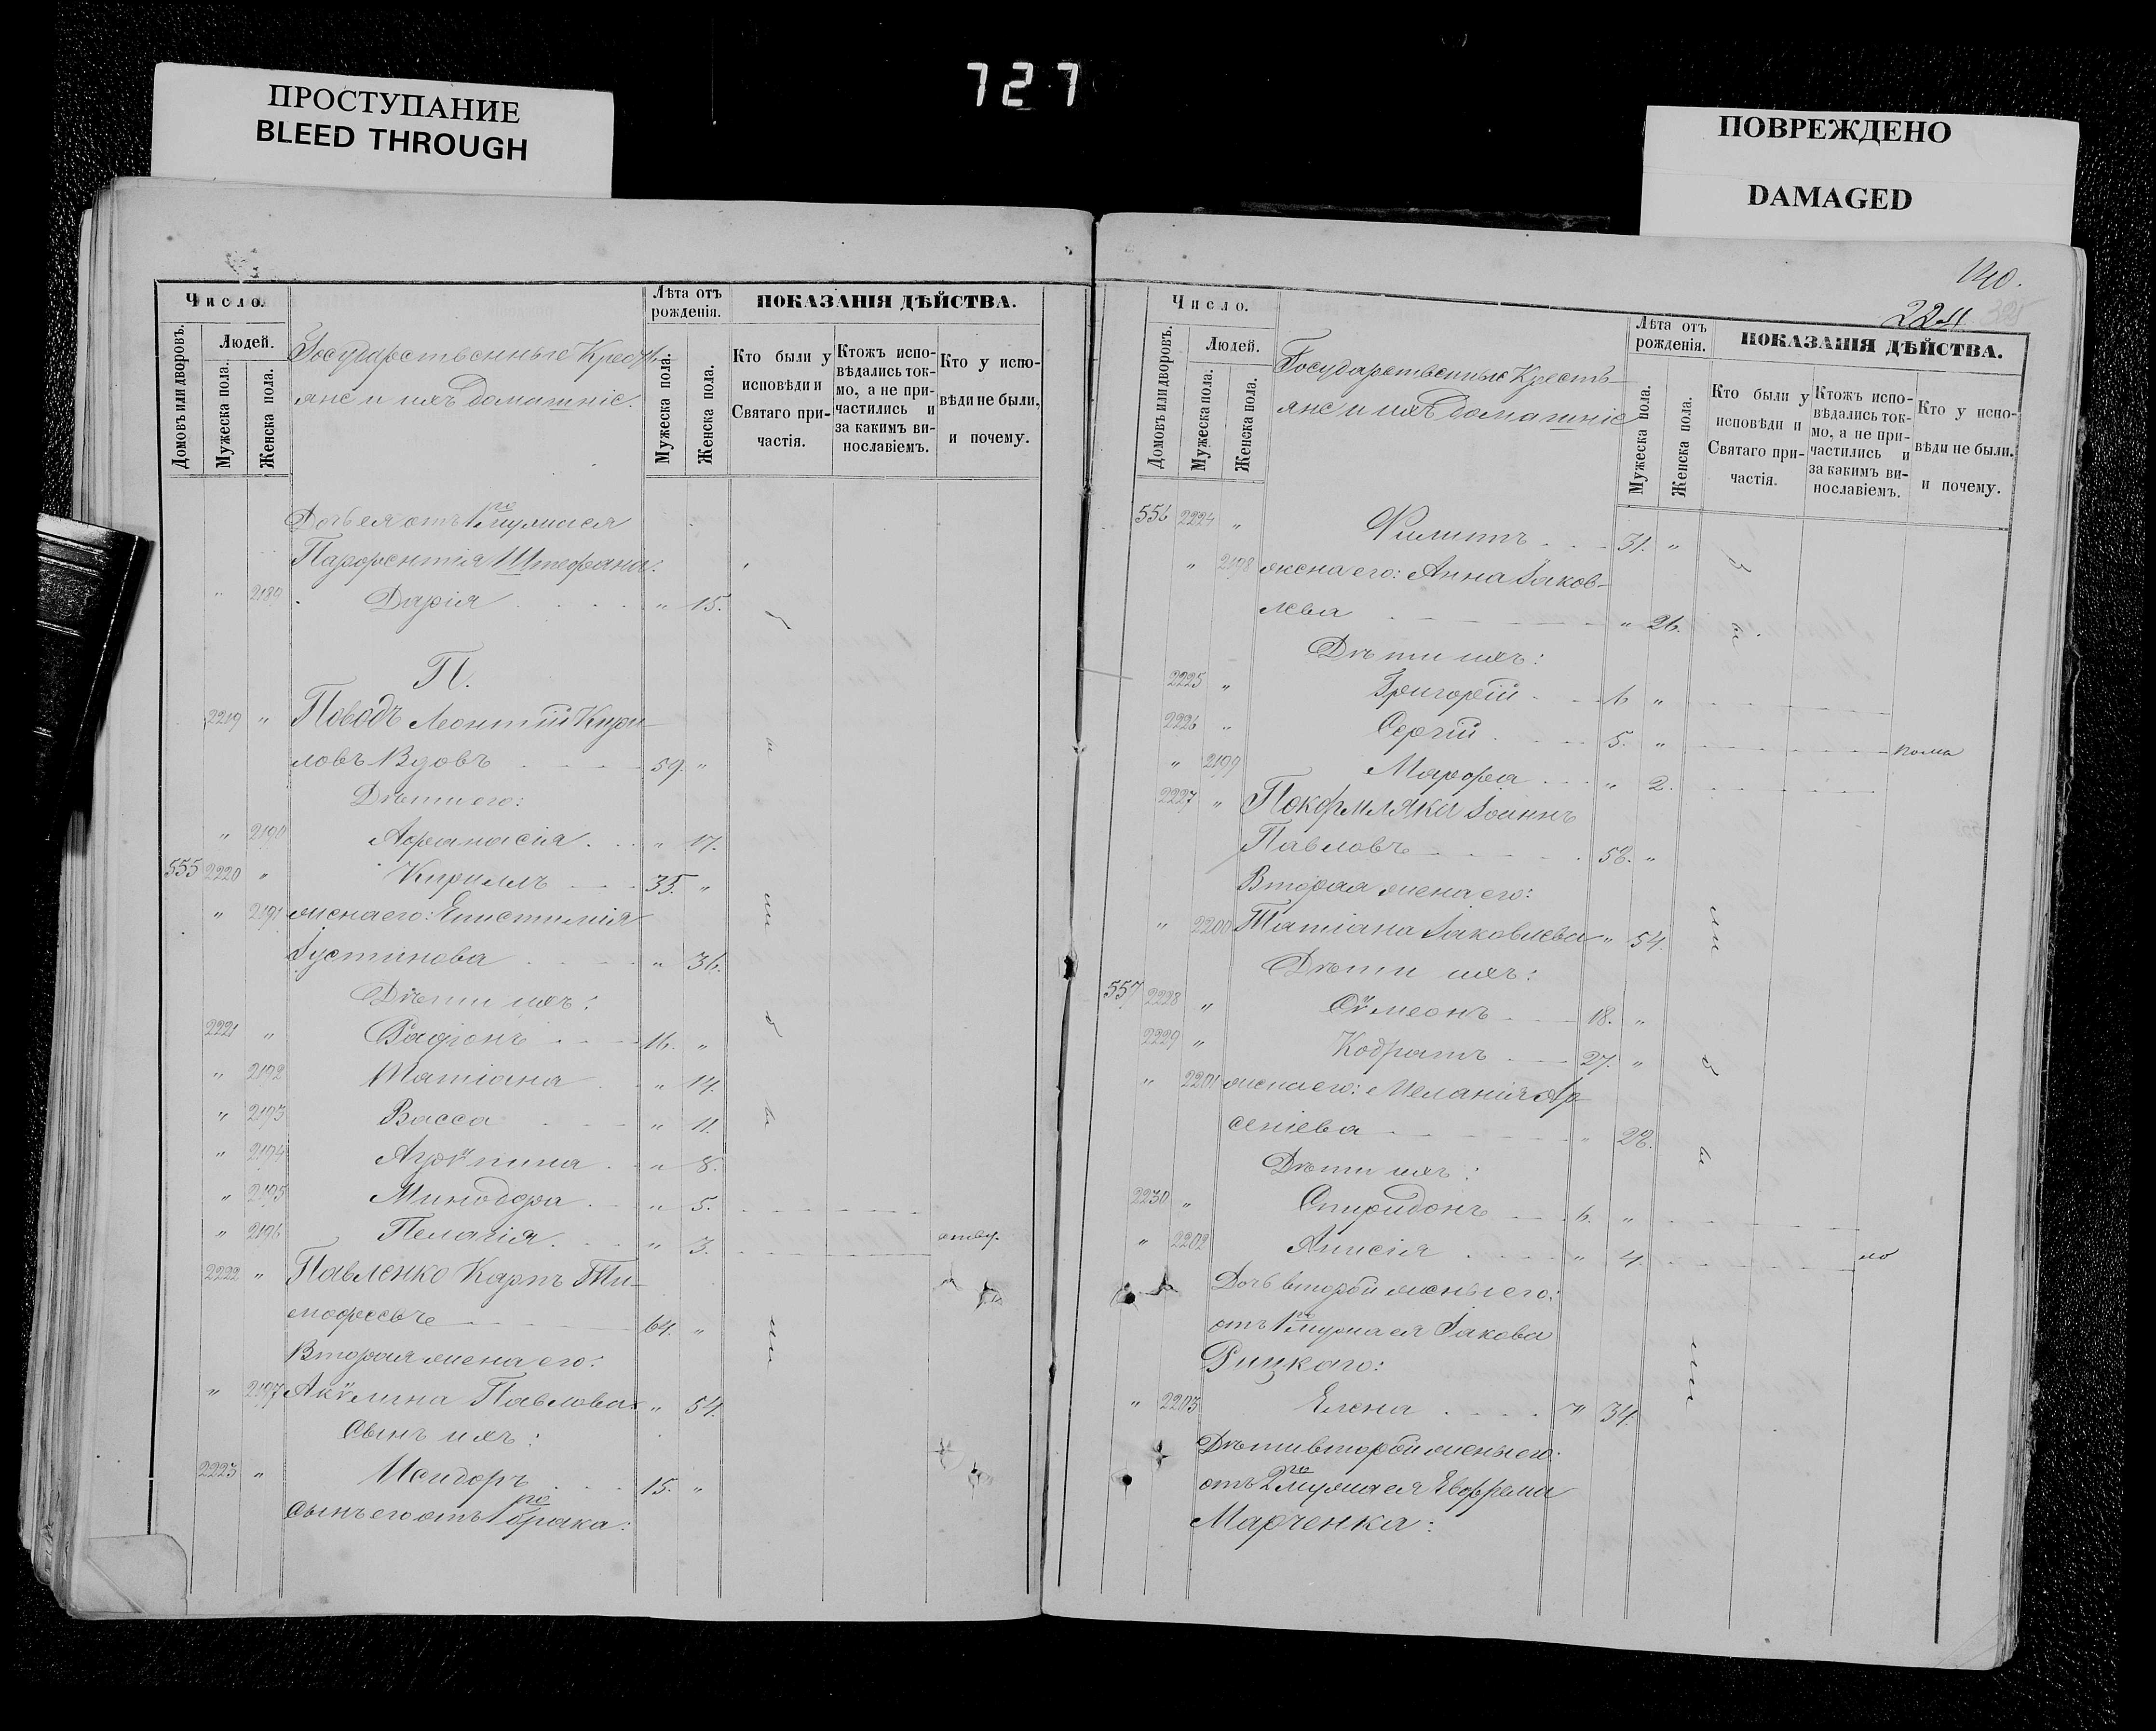 727
ПРОСТУПАНИЕ
BLEED THROUGH
ПОВРЕЖДЕНО
DAMAGED
Число.
Домовъ или дворовъ.
Людей.
Мужеска пола.
Женска пола.
Государственные Кресть-
яне и ихъ домашніе.
Лѣта отъ рожденія.
Мужеска пола.
Женска пола.
ПОКАЗАНІЯ ДѢЙСТВА.
Кто были у исповѣди и Святаго при-частія.
Ктожъ испо-вѣдались ток-мо, а не при-частились и за какимъ ви-нославіемъ.
Кто у испо-вѣди не были, и почему.
Дочь ея отъ 1го мужа ея
Парфентія Штефана:
" 2189 Дарія " 15.
П.
2219 " Поводъ Леонтій Кири-
ловъ Вдовъ 59. "
Дѣти его:
" 2190 Афанасія " 17.
555 2220 " Кириллъ 35. "
" 2191 жена его: Епистимія
Іустинова " 36.
Дѣти ихъ:
2221 " Радіонъ 16. "
" 2192 Татіана " 14.
" 2193 Васса " 11.
" 2194 Агрѵпина " 8.
" 2195 Минодора " 5.
" 2196 Пелагія " 3.
2222 " Павленко Карпъ Ти-
мофеевъ 64. "
Вторая жена его:
" 2197 Акѵлина Павлова " 54.
Сынъ ихъ:
2223 " Исидоръ 15. "
Сынъ его отъ 1го брака:
140.
224
Число.
Домовъ или дворовъ.
Людей.
Мужеска пола.
Женска пола.
Государственные Кресть-
яне и ихъ домашніе
Лѣта отъ рожденія.
Мужеска пола.
Женска пола.
ПОКАЗАНІЯ ДѢЙСТВА.
Кто были у исповѣди и Святаго при-частія.
Ктожъ испо-вѣдались ток-мо, а не при-частились и за какимъ ви-нославіемъ.
Кто у испо-вѣди не были. и почему.
556 2224 " Филиппъ 31. "
" 2198 жена его: Анна Іаков-
лева " 26.
Дѣти ихъ:
2225 " Григорій 6 "
2226 " Сергій 5. "
" 2199 Марфа " 2.
2227 " Покормляка Іоаннъ
Павловъ 58. "
Вторая жена его:
" 2200 Татіана Іаковлева " 54.
Дѣти ихъ:
557 2228 " Сѵмеонъ 18. "
2229 " Кодратъ 27. "
" 2201 жена его: Меланія Ар-
сеніева " 28.
Дѣти ихъ:
2230 " Спиридонъ 6. "
" 2202 Анисія " 4.
Дочь второй жены его:
отъ 1го мужа ея Іакова
Рицкаго:
" 2203 Елена " 34.
Дѣти второй жены его:
отъ 2го мужа ея Евфрема
Марченка: